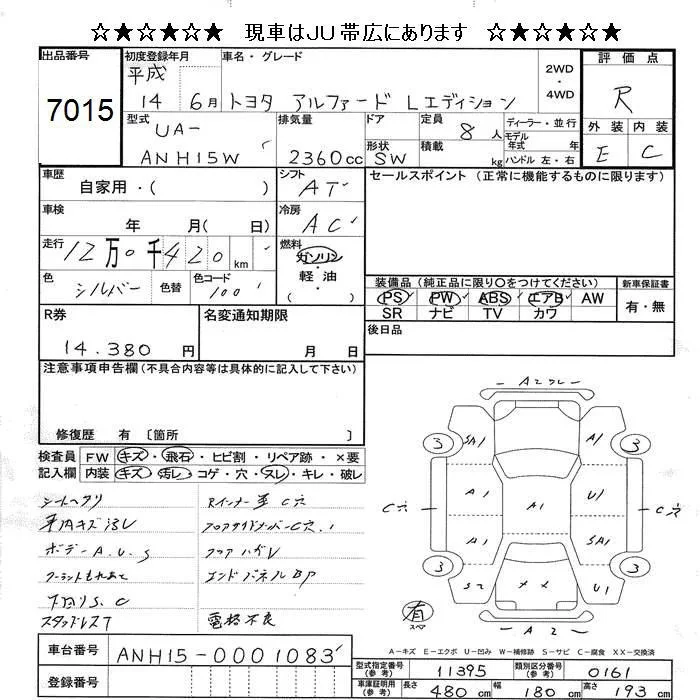 ☆★☆★☆★ 現車はJU帯広にあります ☆★☆★☆★
出品番号 初度登録年月 車名・グレード 2WD ・ 4WD 評価点
7015 平成 14 6月 トヨタ アルファード Lエディション R
型式 排気量 ドア 定員 8人 ディーラー・並行 外装 内装
モデル 年式 年
UA-
ANH15W 2360cc 形状 SW 積載 kg ハンドル 左・右 E C
車歴 シフト セールスポイント (正常に機能するものに限ります)
自家用・( ) AT
車検 冷房
年 月( 日) AC
走行 12万0千420km 燃料 ガソリン・軽油 ( )
色 シルバー 色替 色コード 100
装備品(純正品に限り○をつけてください) 新車保証書
PS PW ABS エアB AW 有・無
SR ナビ TV カワ
R券 名変通知期限 後日品
14.380円 月 日
注意事項申告欄(不具合内容等は具体的に記入して下さい)
修復歴 有 〔箇所 〕
検査員 FW キズ・飛石・ヒビ割・リペア跡・×要
記入欄 内装 キズ・汚レ・コゲ・穴・スレ・キレ・破レ
シートヘタリ
ボデーA.U.S
エンドパネルBP
下回りS.C
スタッドレスT
A2
3 SA1 A1 3
C穴 A1 A1 U1 C穴
A1 SA1
3 S2 U1 3
有 スペア
A2
A-キズ E-エクボ U-凹み W-補修跡 S-サビ C-腐食 XX-交換済
車台番号 ANH15-0001083
登録番号
型式指定番号(参考) 11395 類別区分番号(参考) 0161
車庫証明用(参考) 長さ 480cm 幅 180cm 高さ 193cm